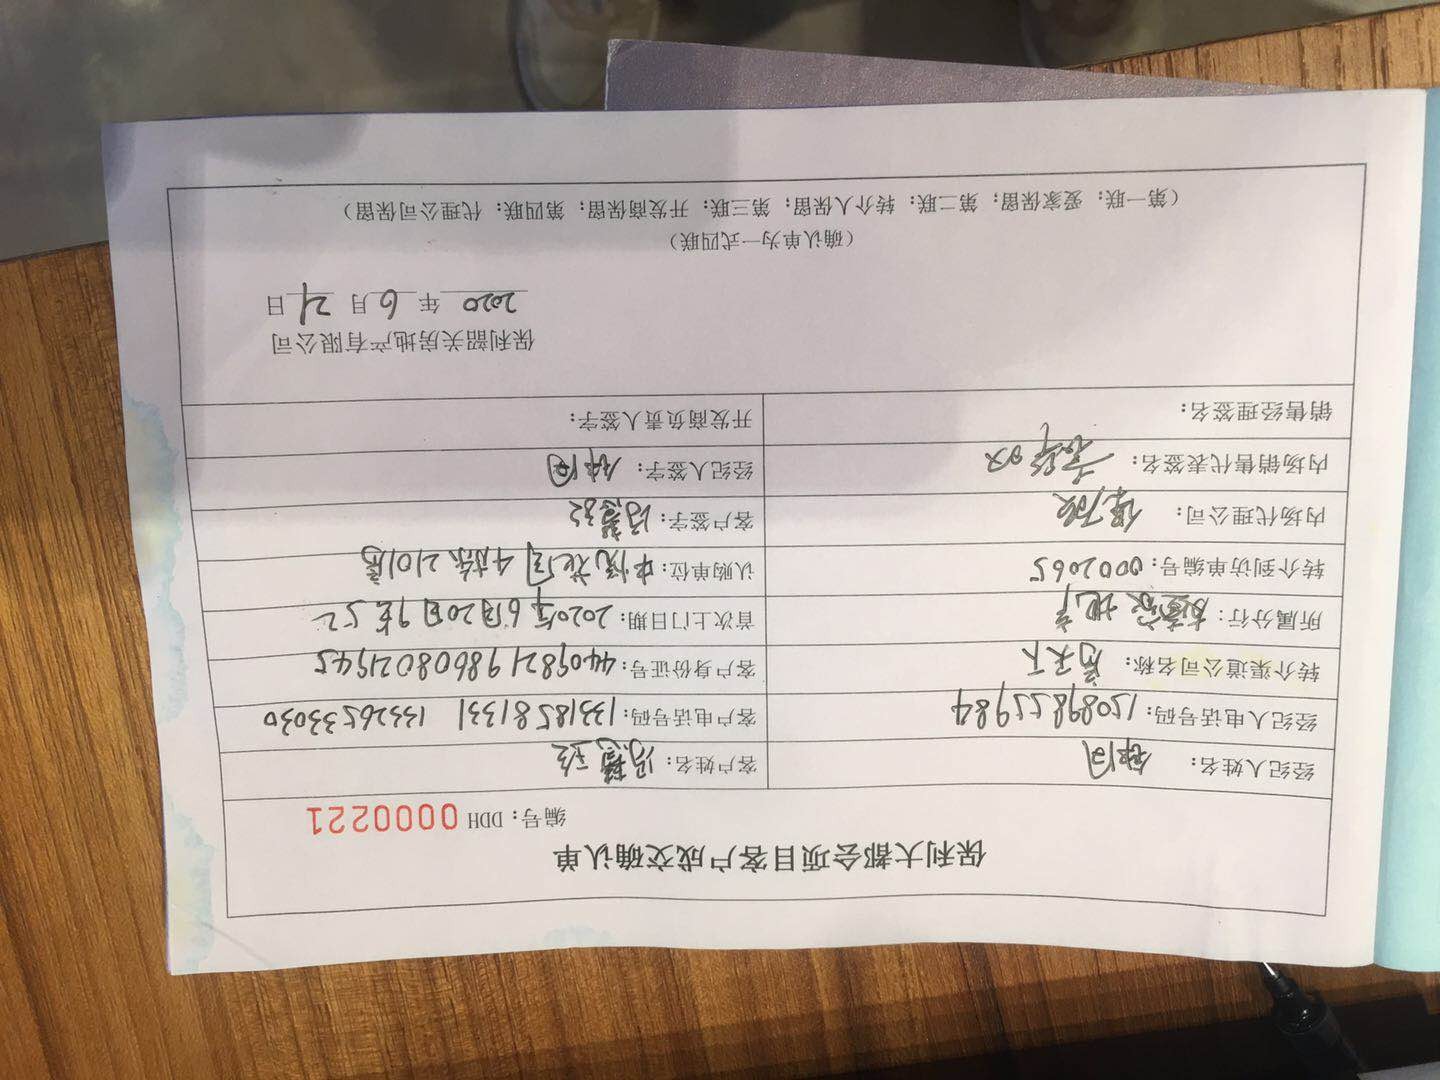 保利大都会项目客户成交确认单
编号：DDH 0000221
经纪人姓名： 客户姓名：
经纪人电话号码：15089855984 客户电话号码：13318581331 13326533030
转介渠道公司名称：房天下 客户身份证号：440982198608024945
所属分行： 家地产 首次上门日期：2020年6月20日9点52
转介到访单编号：0002065 认购单位：中悦花园4栋2101房
内场代理公司：保 客户签字：
内场销售代表签名： 经纪人签字：
销售经理签名： 开发商负责人签字：
保利韶关房地产有限公司
2020年6月21日
（确认单为一式四联）
（第一联：爱家保留；第二联：转介人保留；第三联：开发商保留；第四联：代理公司保留）